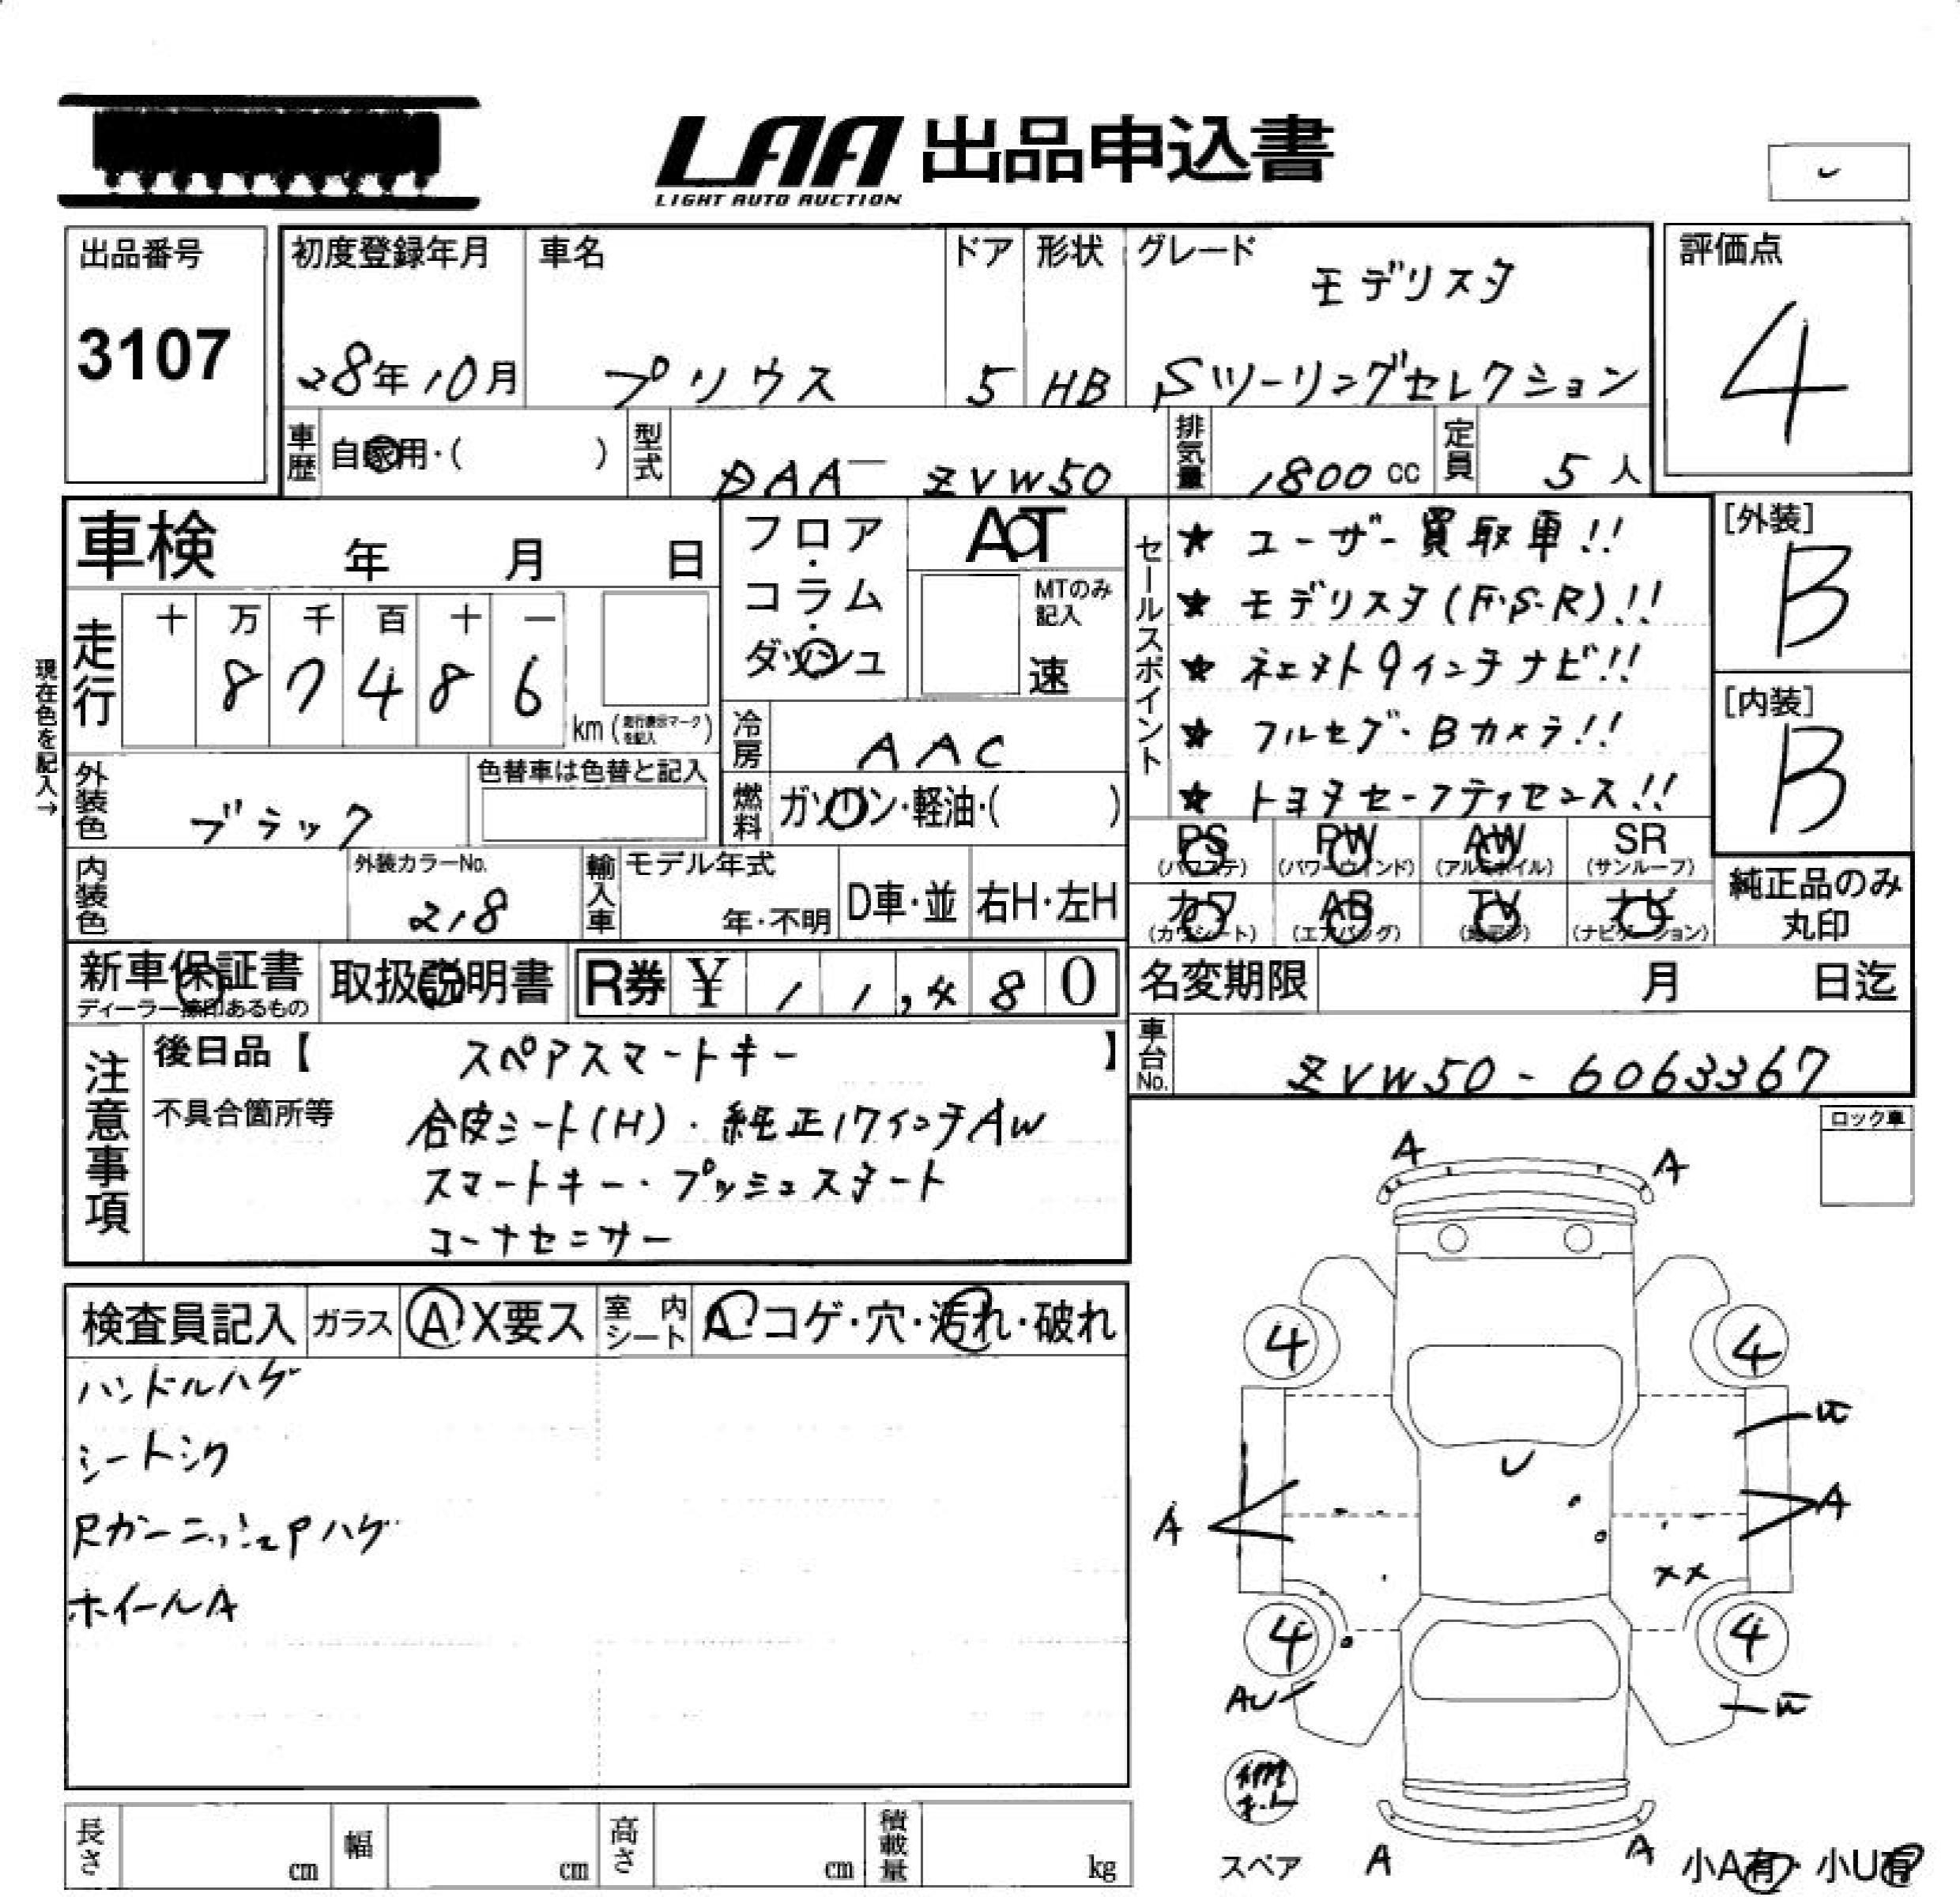 LAA 出品申込書
LIGHT AUTO AUCTION
出品番号
3107
初度登録年月
28年10月
車名
プリウス
ドア
5
形状
HB
グレード
モデリスタ
Sツーリングセレクション
評価点
4
車歴
自家用・( )
型式
DAA-ZVW50
排気量
1800cc
定員
5人
車検 年 月 日
現在色を記入→
走行
十 万 千 百 十 一
8 7 4 8 6
km(走行表示マークを記入)
フロア・コラム・ダッシュ
AT
MTのみ記入
速
冷房
AAC
燃料
ガソリン・軽油・( )
外装色
ブラック
色替車は色替と記入
内装色
外装カラーNo.
218
輸入車
モデル年式
年・不明
D車・並
右H・左H
セールスポイント
★ ユーザー買取車!!
★ モデリスタ(F・S・R)!!
★ ネエメト9インチナビ!!
★ フルセグ・Bカメラ!!
★ トヨタセーフティセンス!!
[外装]
B
[内装]
B
PS (パワステ)
PW (パワーウィンド)
AW (アルミホイル)
SR (サンルーフ)
カワ (カワシート)
AB (エアバッグ)
TV (地デジ)
ナビ (ナビゲーション)
純正品のみ丸印
新車保証書
ディーラー捺印あるもの
取扱説明書
R券 ¥ 11,480
名変期限 月 日迄
車台No.
ZVW50-6063367
注意事項
後日品【 スペアスマートキー 】
不具合箇所等
合皮シート(H)・純正17インチAW
スマートキー・プッシュスタート
コーナセンサー
ロック車
検査員記入
ガラス
A X要ス
室内シート
A コゲ・穴・汚れ・破れ
ハンドルハゲ
シートシワ
RガーニッシュPハゲ
ホイールA
A
A
4
4
A
A
U
XX
4
4
AU
スペア
A
A
小A有・小U有
長さ cm
幅 cm
高さ cm
積載量 kg